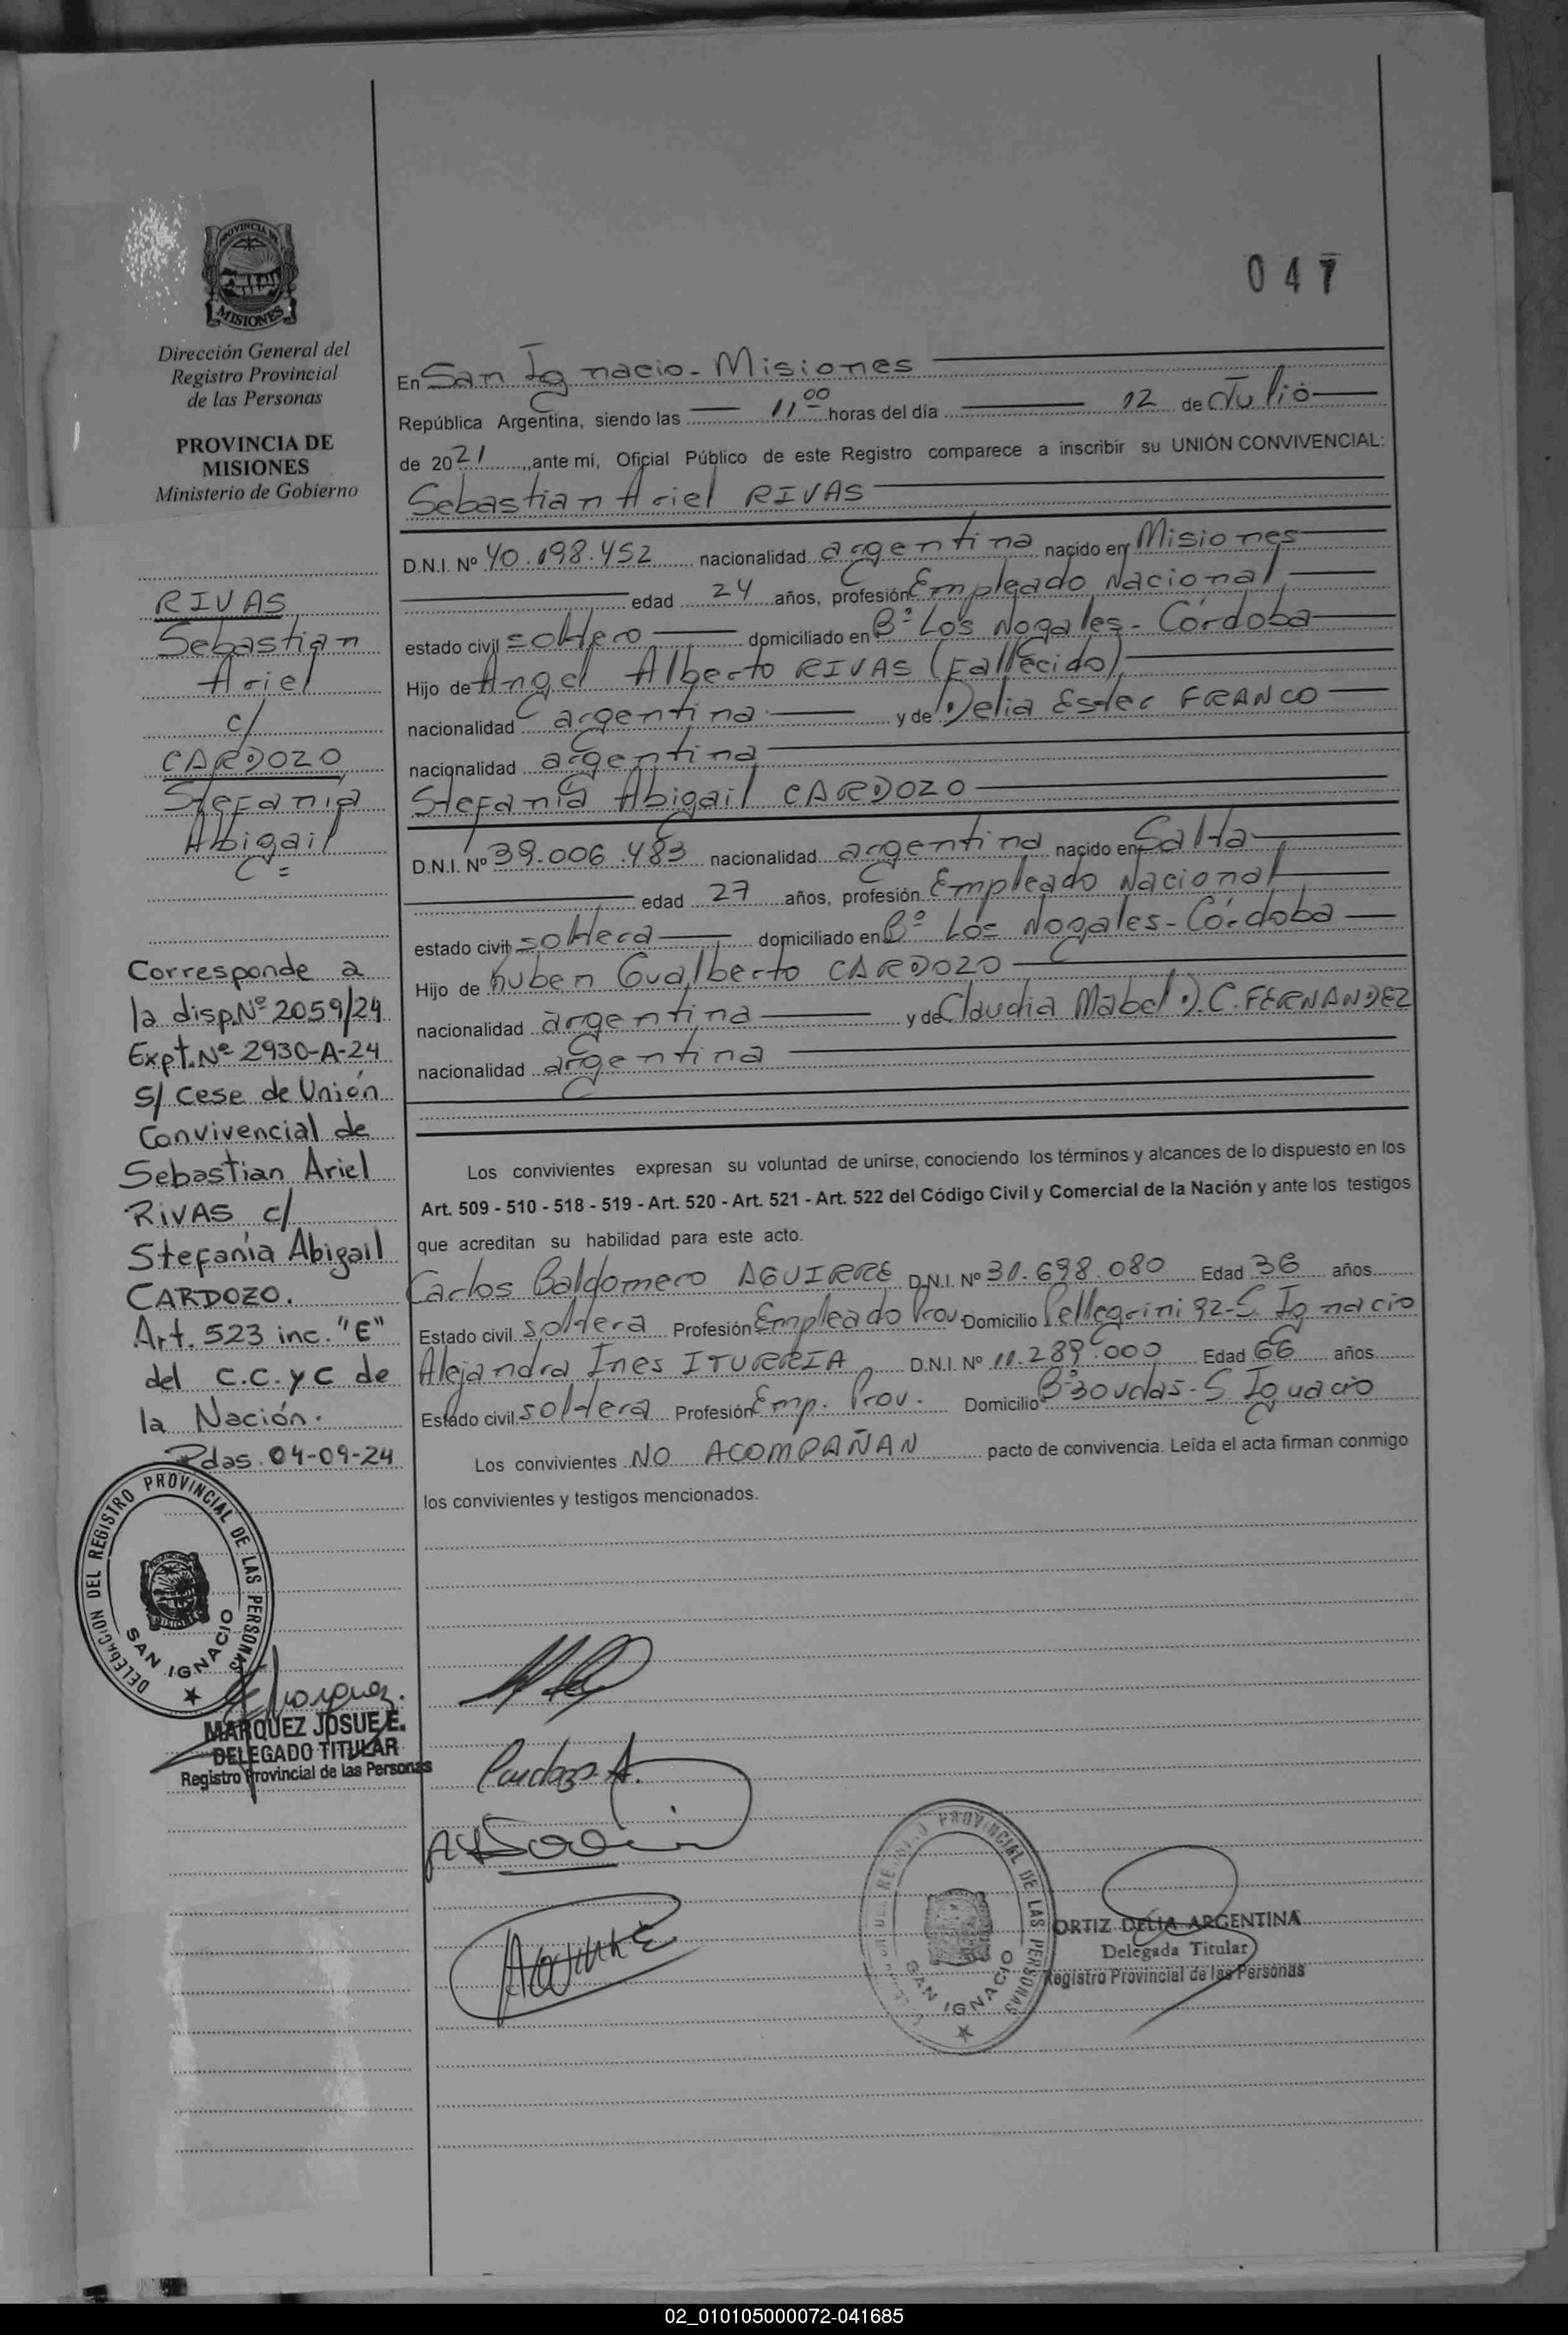 PROVINCIA DE
MISIONES
Dirección General del
Registro Provincial
de las Personas
PROVINCIA DE
MISIONES
Ministerio de Gobierno
RIVAS
Sebastian
Ariel
c/
CARDOZO
Stefanía
Abigail
Corresponde a
la disp. Nº 2059/24
Expt. Nº 2930-A-24
s/ Cese de Unión
Convivencial de
Sebastian Ariel
RIVAS c/
Stefanía Abigail
CARDOZO.
Art. 523 inc. "E"
del C.C. y C de
la Nación.
Pdas. 04-09-24
DELEGACION DEL REGISTRO PROVINCIAL DE LAS PERSONAS
MISIONES
SAN IGNACIO
MARQUEZ JOSUE E.
DELEGADO TITULAR
Registro Provincial de las Personas
047
En San Ignacio - Misiones
República Argentina, siendo las 11,00 horas del día 12 de Julio
de 2021, ante mí, Oficial Público de este Registro comparece a inscribir su UNIÓN CONVIVENCIAL:
Sebastian Ariel RIVAS
D.N.I. Nº 40.198.452 nacionalidad argentina nacido en Misiones
edad 24 años, profesión Empleado Nacional
estado civil soltero domiciliado en Bº Los Nogales - Córdoba
Hijo de Angel Alberto RIVAS (Fallecido)
nacionalidad argentina y de Delia Ester FRANCO
nacionalidad argentina
Stefanía Abigail CARDOZO
D.N.I. Nº 39.006.483 nacionalidad argentina nacido en Salta
edad 27 años, profesión Empleado Nacional
estado civil soltera domiciliado en Bº Los Nogales - Córdoba
Hijo de Ruben Gualberto CARDOZO
nacionalidad argentina y de Claudia Mabel D. C. FERNANDEZ
nacionalidad argentina
Los convivientes expresan su voluntad de unirse, conociendo los términos y alcances de lo dispuesto en los
Art. 509 - 510 - 518 - 519 - Art. 520 - Art. 521 - Art. 522 del Código Civil y Comercial de la Nación y ante los testigos
que acreditan su habilidad para este acto.
Carlos Baldomero AGUIRRE D.N.I. Nº 31.698.080 Edad 36 años
Estado civil soltera Profesión Empleado Prov. Domicilio Pellegrini 92 - S. Ignacio
Alejandra Ines ITURRIA D.N.I. Nº 11.289.000 Edad 66 años
Estado civil soltera Profesión Emp. Prov. Domicilio Bº 30 vdas - S. Ignacio
Los convivientes NO ACOMPAÑAN pacto de convivencia. Leída el acta firman conmigo
los convivientes y testigos mencionados.
Cardozo A.
PROVINCIAL DE LAS PERSONAS
SAN IGNACIO
ORTIZ DELIA ARGENTINA
Delegada Titular
Registro Provincial de las Personas
02_010105000072-041685